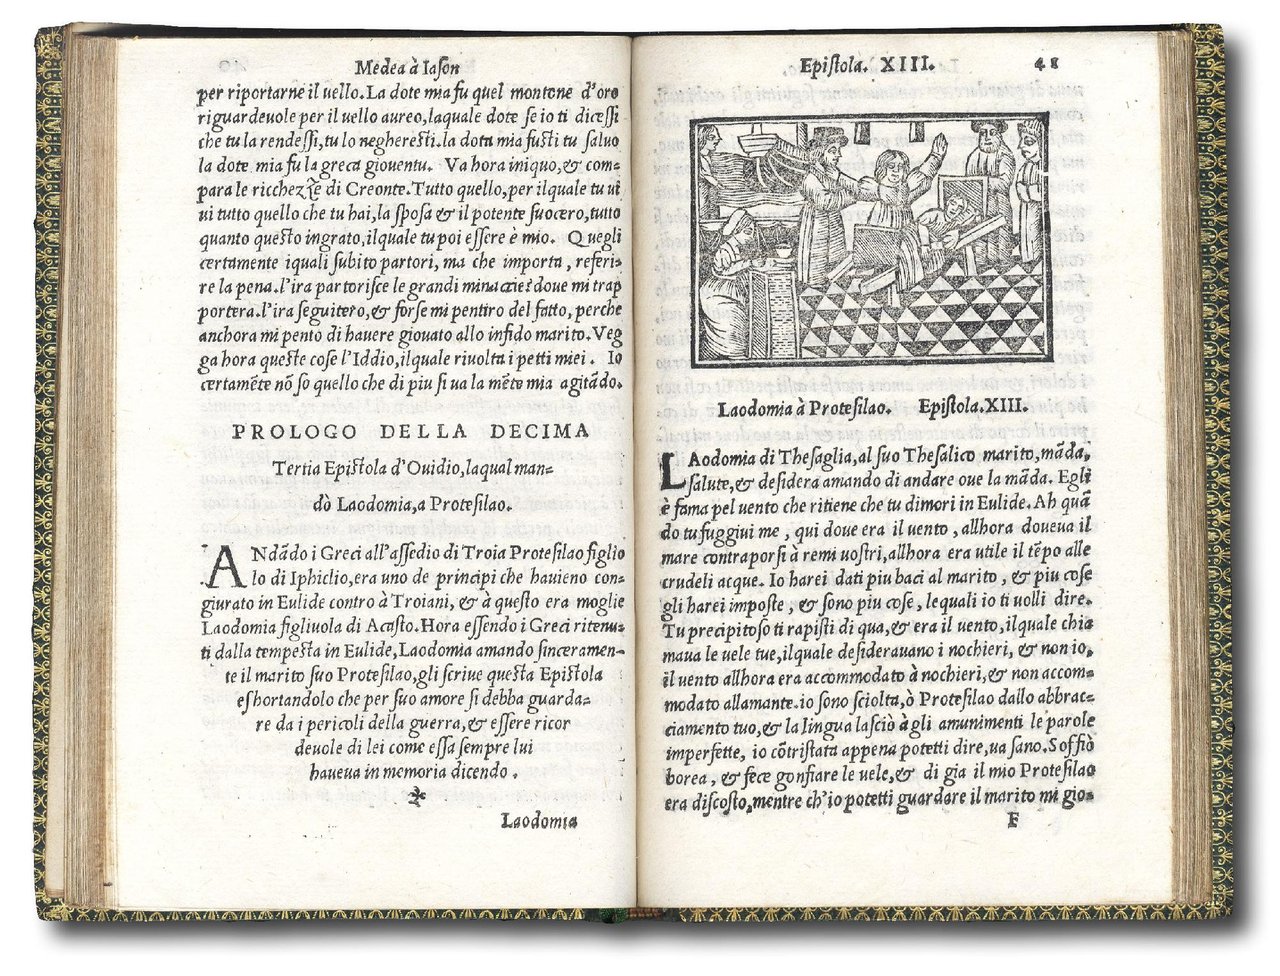 Medea à Iason
per riportarne il uello. La dote mia fu quel montone d'oro
riguardeuole per il uello aureo, laquale dote se io ti dicessi
che tu la rendessi, tu lo negheresti. la dota mia fusti tu saluo
la dote mia fu la greca giouentu. Va hora iniquo, & com-
para le ricchezze di Creonte. Tutto quello, per ilquale tu ui
ui tutto quello che tu hai, la sposa & il potente suocero, tutto
quanto questo ingrato, ilquale tu poi essere è mio. Quegli
certamente iquali subito partori, ma che importa, referi-
re la pena. l'ira partorisce le grandi minaccie: doue mi trap
portera. l'ira seguitero, & forse mi pentiro del fatto, perche
anchora mi pento di hauere giouato allo infido marito. Veg
ga hora queste cose l'Iddio, ilquale riuolta i petti miei. Io
certamẽte nõ so quello che di piu si ua la mẽte mia agitãdo.
PROLOGO DELLA DECIMA
Tertia Epistola d'Ouidio, laqual man-
dò Laodomia, a Protesilao.
ANdãdo i Greci all'assedio di Troia Protesilao figlio
lo di Iphiclio, era uno de principi che hauieno con-
giurato in Eulide contro à Troiani, & à questo era moglie
Laodomia figliuola di Acasto. Hora essendo i Greci ritenu-
ti dalla tempesta in Eulide, Laodomia amando sinceramen-
te il marito suo Protesilao, gli scriue questa Epistola
eshortandolo che per suo amore si debba guarda-
re da i pericoli della guerra, & essere ricor
deuole di lei come essa sempre lui
haueua in memoria dicendo.
Laodomia
Epistola. XIII. 41
Laodomia à Protesilao. Epistola. XIII.
LAodomia di Thesaglia, al suo Thesalico marito, mãda,
salute, & desidera amando di andare oue la mãda. Egli
è fama pel uento che ritiene che tu dimori in Eulide. Ah quã
do tu fuggiui me, qui doue era il uento, allhora doueua il
mare contraporsi à remi uostri, allhora era utile il tẽpo alle
crudeli acque. Io harei dati piu baci al marito, & piu cose
gli harei imposte, & sono piu cose, lequali io ti uolli dire.
Tu precipitoso ti rapisti di qua, & era il uento, ilquale chia
maua le uele tue, ilquale desiderauano i nochieri, & non io.
il uento allhora era accommodato à nochieri, & non accom-
modato allamante. io sono sciolta, ò Protesilao dallo abbrac-
ciamento tuo, & la lingua lasciò à gli amunimenti le parole
imperfette, io cõtristata appena potetti dire, ua sano. Soffiò
borea, & fece gonfiare le uele, & di gia il mio Protesilao
era discosto, mentre ch'io potetti guardare il marito mi gio-
F